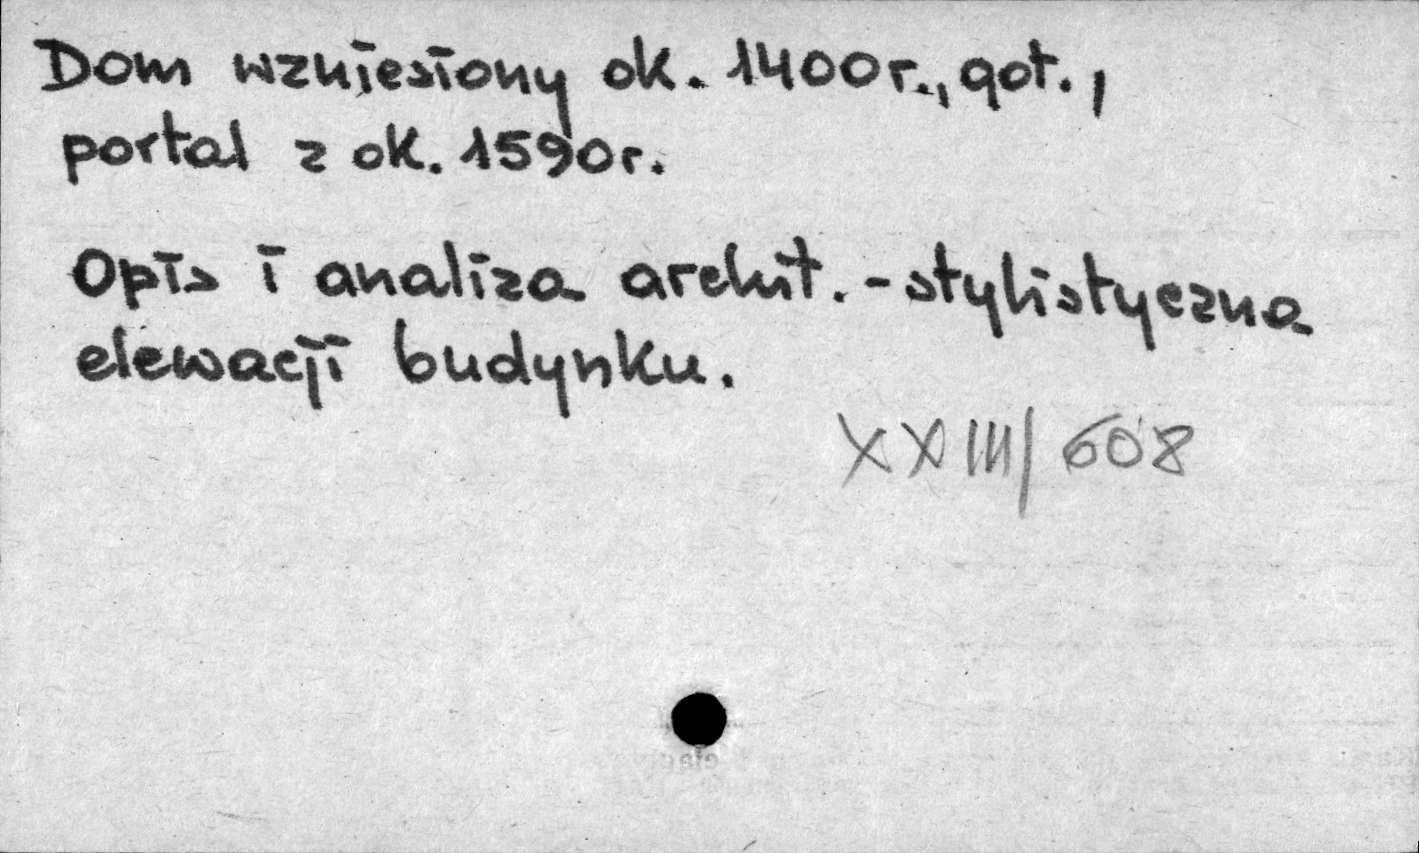 Dom wzniesiony ok. 1400r., got.,
portal z ok. 1590r.
Opis i analiza archit.-stylistyczna
elewacji budynku.
XXIII/608